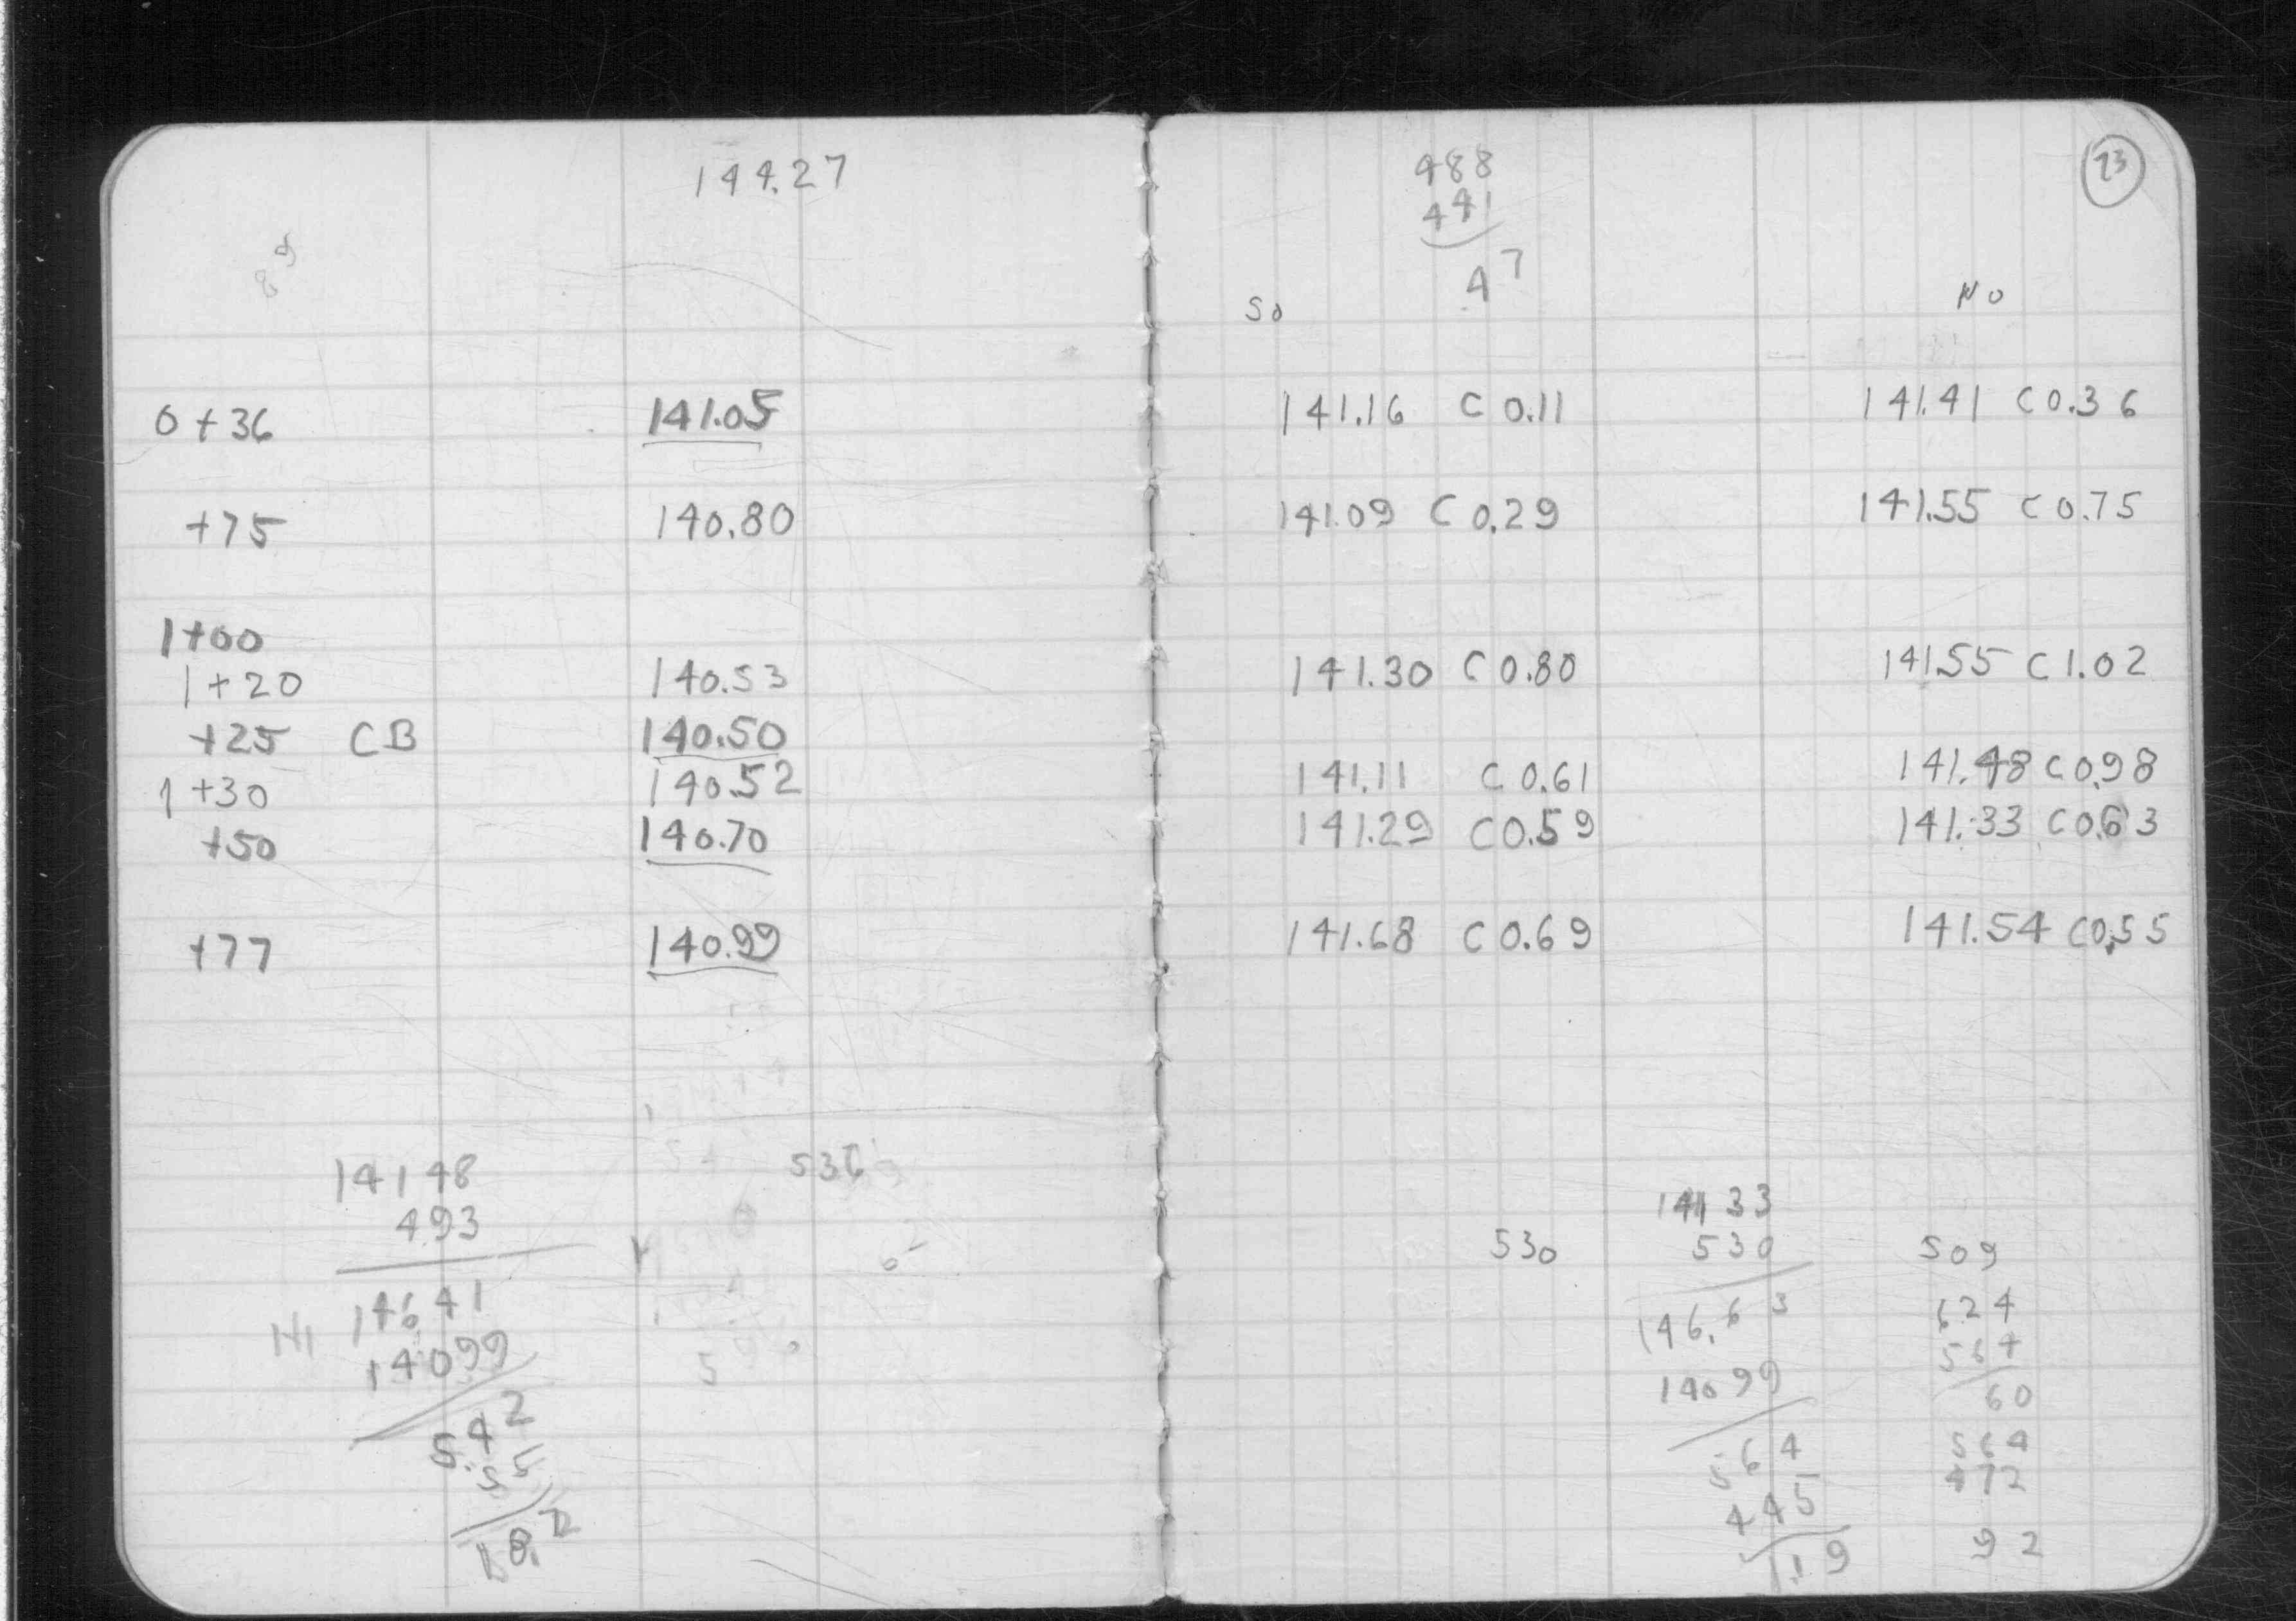 144.27
89
0+36 141.05
+75 140.80
1+00
1+20 140.53
+25 CB 140.50
1+30 140.52
+50 140.70
+77 140.99
14148
493
HI 14641
14099
5.42
.55
536
23
488
441
47
So No
141.16 C 0.11 141.41 C 0.36
141.09 C 0.29 141.55 C 0.75
141.30 C 0.80 141.55 C 1.02
141.11 C 0.61 141.48 C 0.98
141.29 C 0.59 141.33 C 0.63
141.68 C 0.69 141.54 C 0.55
530
14133
530
146.63
14099
564
445
1.19
509
624
564
60
564
472
92